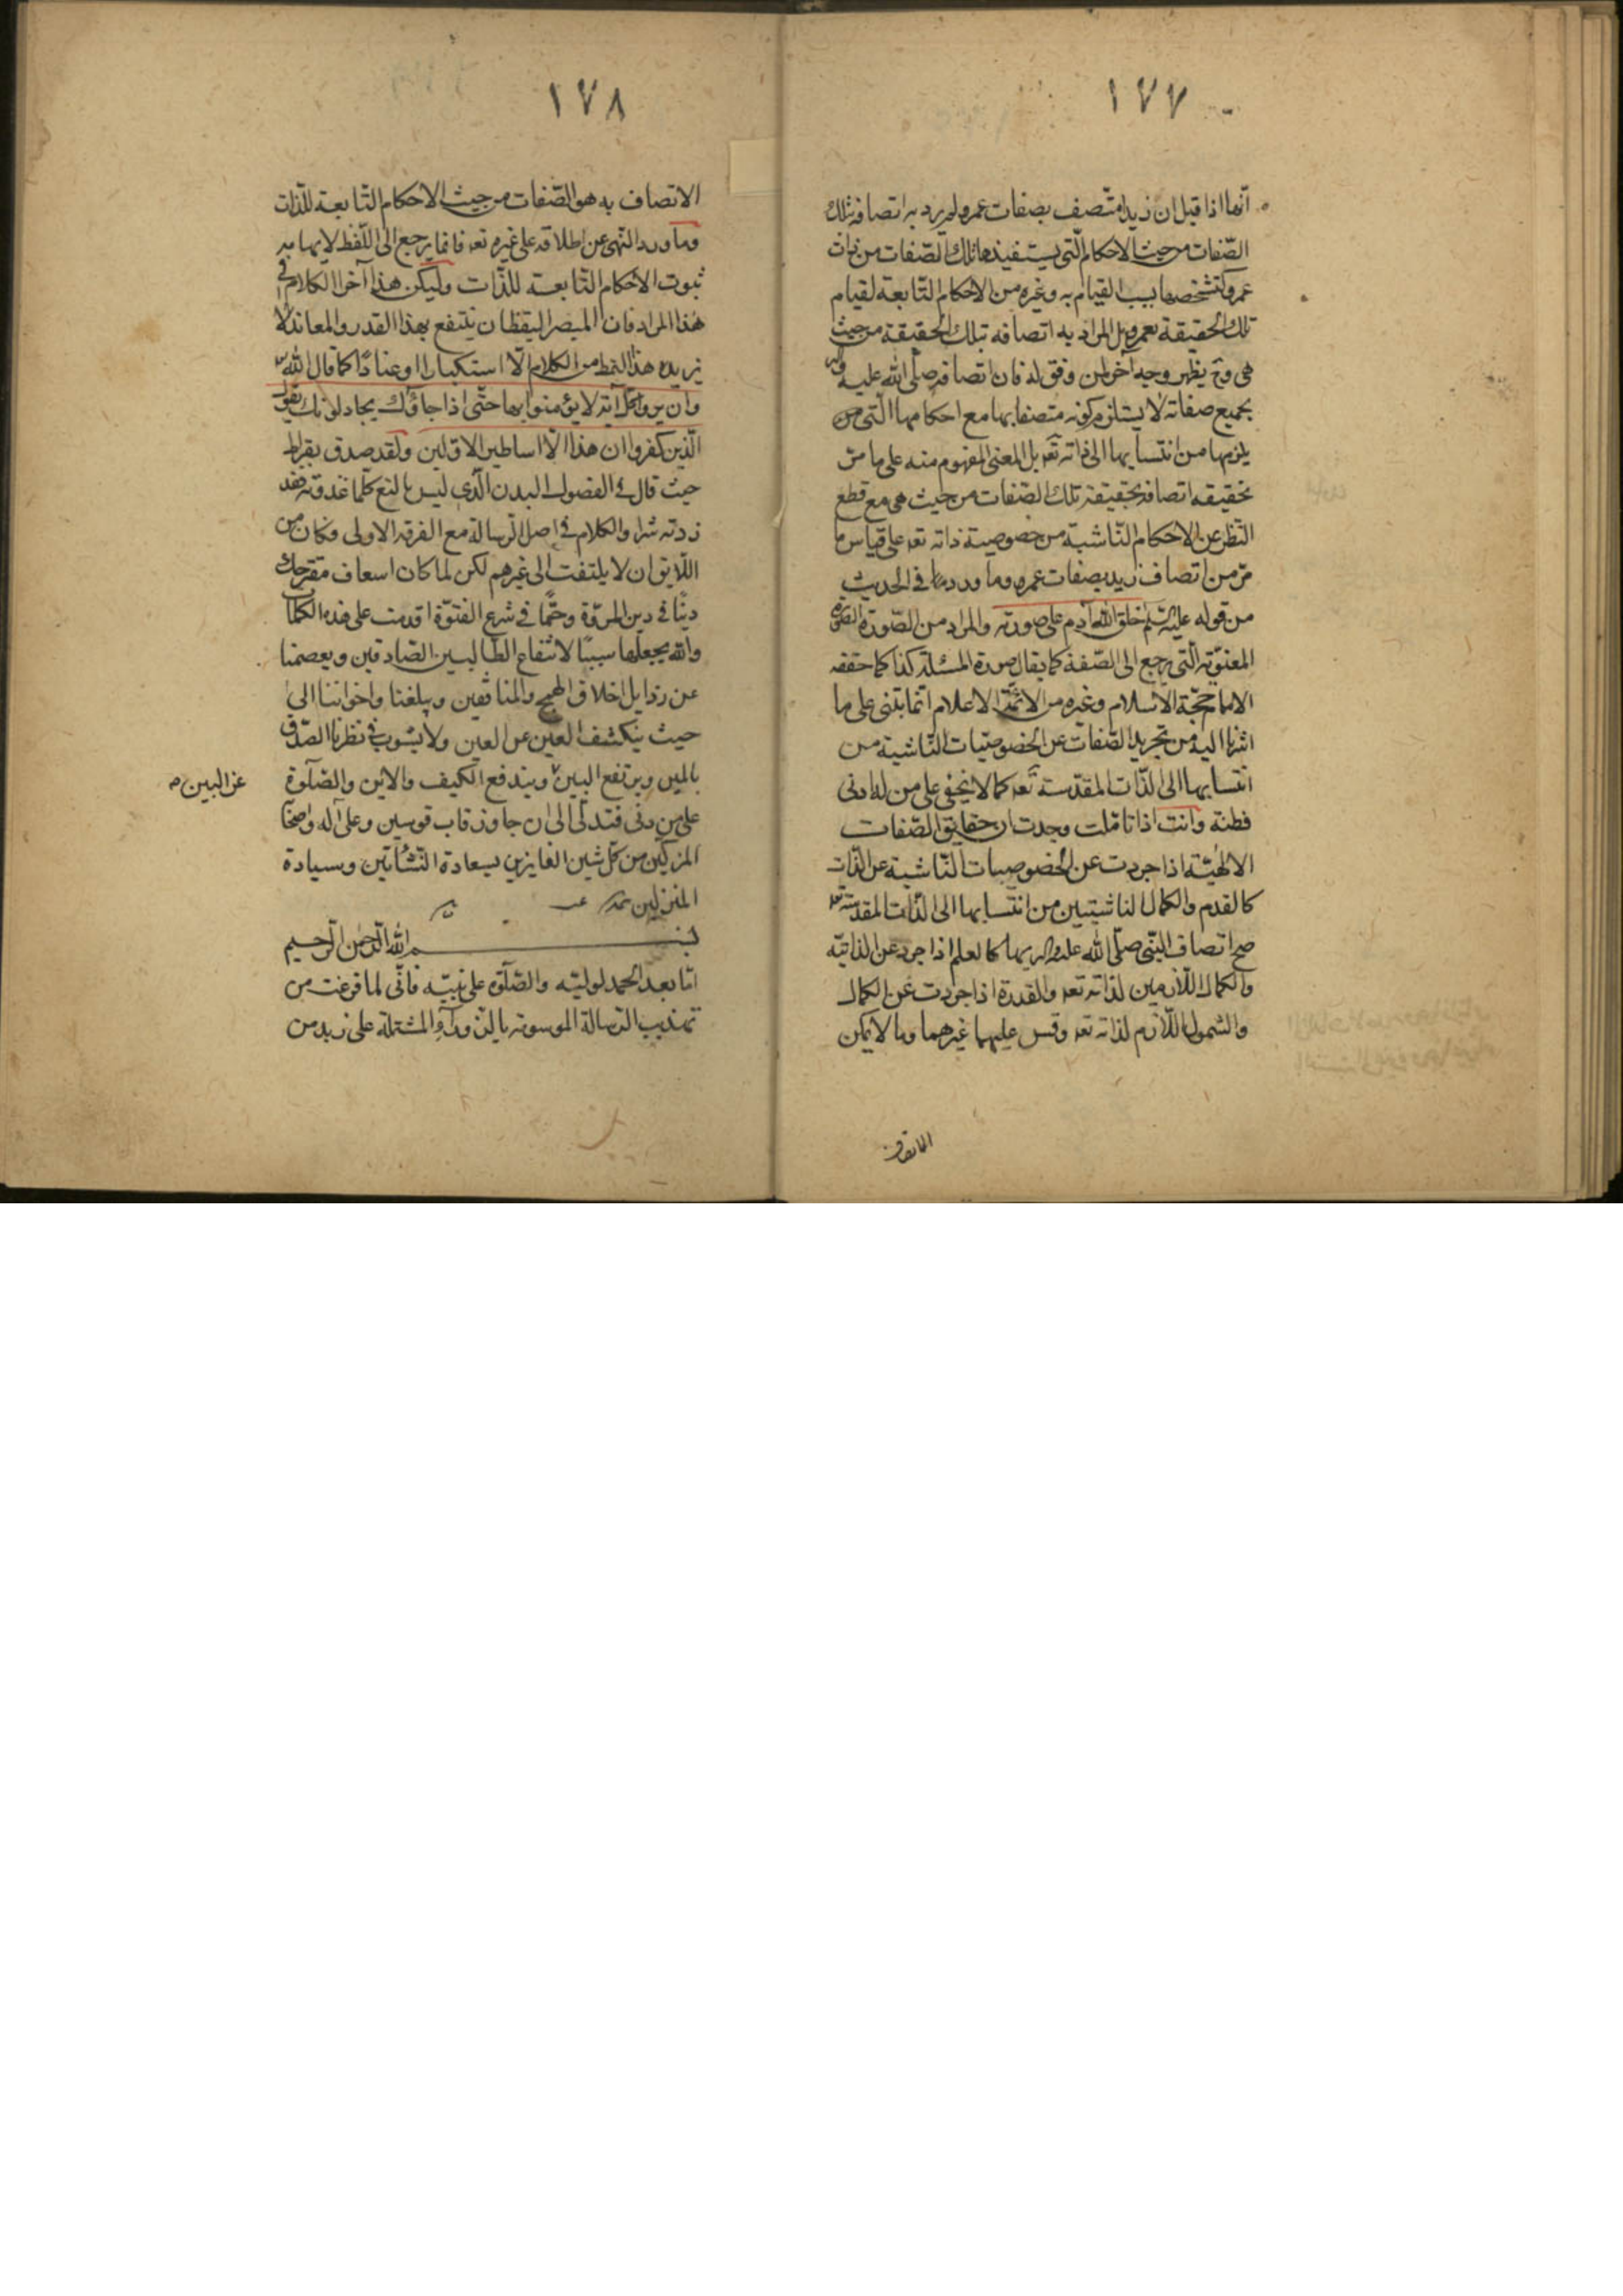 ١٧٧
انّها اذا قيل ان زيدا متّصف بصفات عمرو لم يرد به اتصافه بتلك
الصّفات من حيث الاحكام الّتي يستفيدها تلك الصّفات من ذات
عمرو كتشخصها بسبب القيام به وغيره من الاحكام التّابعة لقيام
تلك الحقيقة بعمرو بل المراد به اتصافه بتلك الحقيقة من حيث
هى وح يظهر وجه آخر لمن وفق له فان اتصافه صلّى الله عليه وآله
بجميع صفاته لا يستلزم كونه متصفا بها مع احكامها الّتى
يلزمها من انتسابها الى ذاته تعه بل المعنى المفهوم منه على ما مرّ
تحقيقه اتصافه بحقيقة تلك الصّفات من حيث هى مع قطع
النّظر عن الاحكام النّاشية من خصوصية ذاته تعه على قياس ما
مرّ من اتصاف زيد بصفات عمرو وما ورد فى الحديث
من قوله عليه السّلم خلق الله آدم على صورته والمراد من الصّورة الصّورة
المعنويّة الّتى يرجع الى الصّفة كما يقال صورة المسئلة كذا كما حققه
الامام حجّة الاسلام وغيره من الائمّة الاعلام انّما يبتنى على ما
اشرنا اليه من تجريد الصّفات عن الخصوصيّات النّاشية من
انتسابها الى الذّات المقدّسة تعه كما لا يخفى على من له ادنى
فطنة وانت اذا تامّلت وجدت ان حقايق الصّفات
الالهيّة اذا جردت عن الخصوصيات النّاشية عن الذّات
كالقدم والكمال الناشيتين من انتسابها الى الذّات المقدّسة تعه
صح اتصاف النّبى صلّى الله عليه وآله بها كالعلم اذا جرد عن الذاتيّة
والكمال اللّازمين لذاته تعه والقدرة اذا جردت عن الكمال
والشمول اللّازم لذاته تعه وقس عليهما غيرهما وما لا يمكن
الاتصاف
١٧٨
الاتصاف به هو الصّفات من حيث الاحكام التّابعة للّذات
وما ورد النّهى عن اطلاقه على غيره تعه فانما يرجع الى اللّفظ لايهامه
ثبوت الاحكام التّابعة للذّات وليكن هذا آخر الكلام فى
هٰذا المرام فان المبصر اليقظان ينتفع بهذا القدر والمعاند لا
يزيده هذا النمط من الكلام الّا استكبارا او عنادًا كما قال الله
وان يروا كلّ آية لا يؤمنوا بها حتّى اذا جاؤك يجادلونك يقول
الّذين كفروا ان هذا الّا اساطير الاوّلين ولقد صدق بقراط
حيث قال فى الفصول البدن الّذى ليس بالنقى كلّما غدوته فقد
زدته شرا والكلام فى اصل الرّسالة مع الفرقة الاولى وكان من
اللّايق ان لا يلتفت الى غيرهم لكن لما كان اسعاف مقترحك
دينًا فى دين المروّة وحتمًا فى شرع الفتوّة اقدمت على هذه الكلمات
والله يجعلها سببًا لانتفاع الطّالبين الصّادقين ويعصمنا
عن رذايل اخلاق الهمج والمنافقين ويبلغنا واخواننا الى
حيث ينكشف العين عن العين ولا يشوب فى نظرنا الصّدق
بالمين ويرتفع البين ويندفع الكيف والاين والصّلوة
على من دنى فتدلّى الى ان جاوز قاب قوسين وعلى آله واصحابه
المزكّين من كلّ شين الفايزين بسعادة النّشأتين وسيادة
المنزلين
بسم الله الرّحمن الرّحيم
امّا بعد الحمد لوليّه والصّلوة على نبيّه فانّى لما فرغت من
تهذيب الرّسالة الموسومة بالزّوراء المشتملة على زبد من
عن البين صه